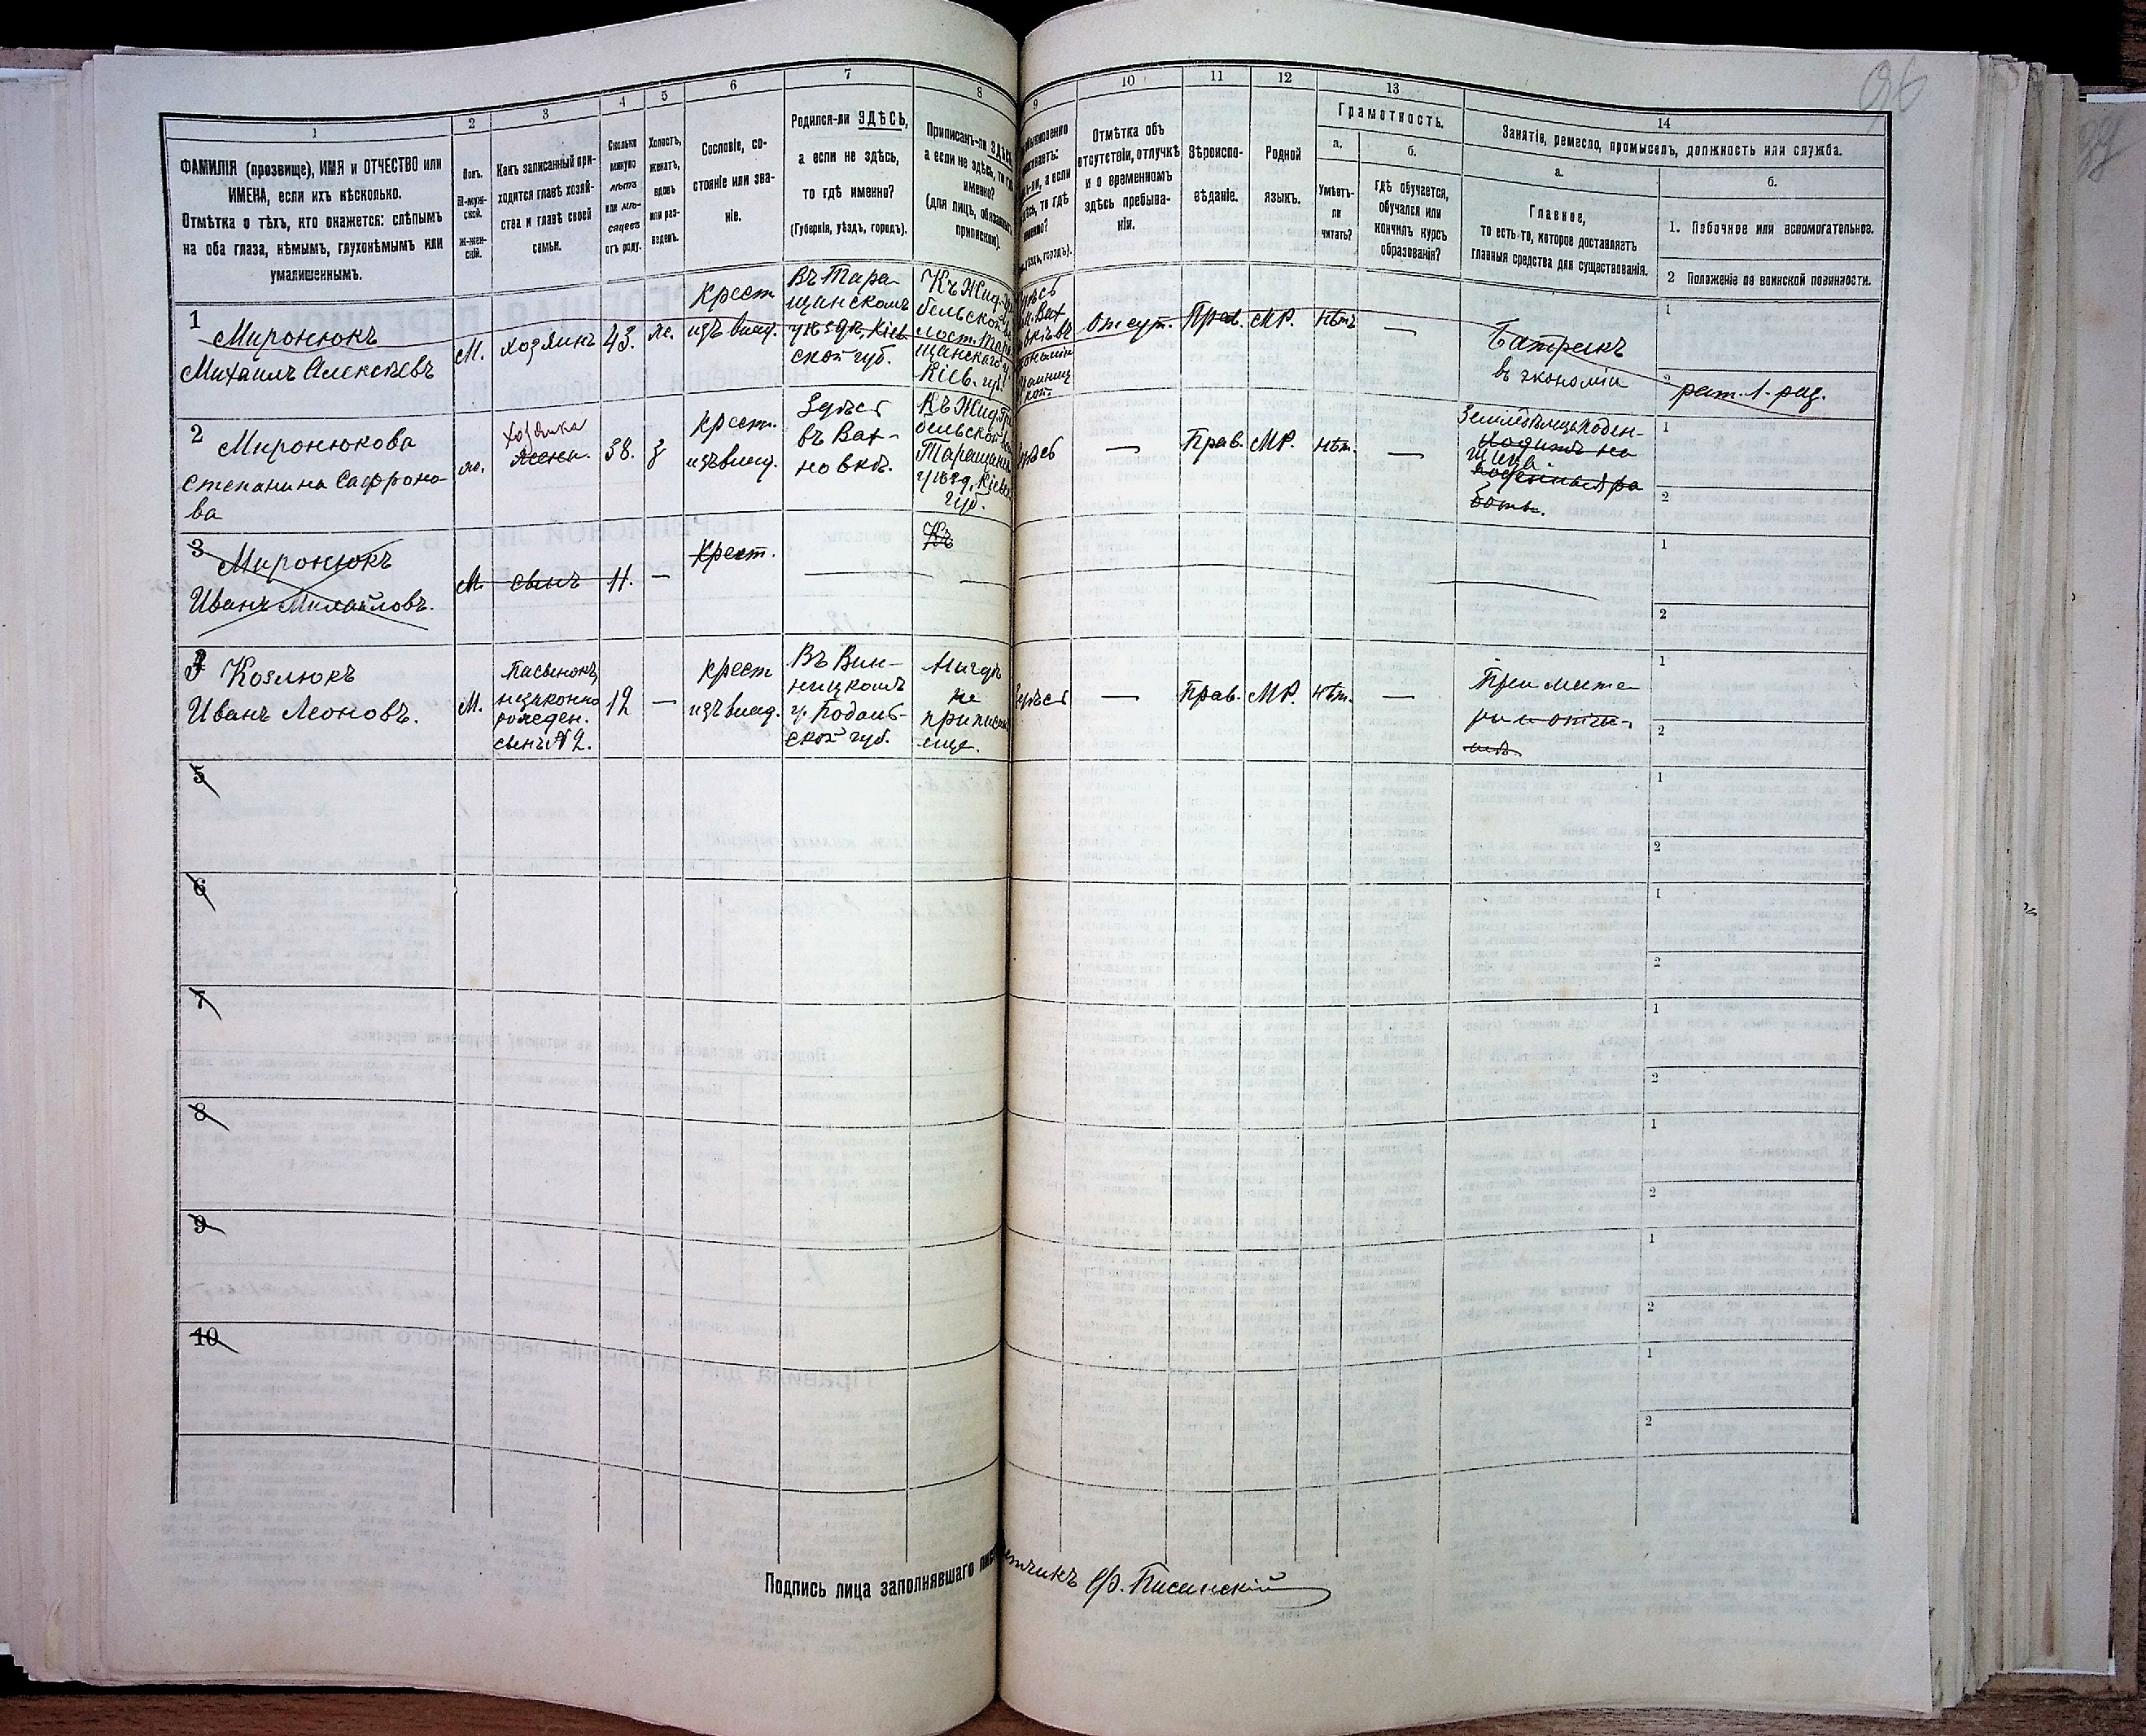 96
1
2
3
4
5
6
7
8
9
10
11
12
13
14
ФАМИЛІЯ (прозвище), ИМЯ и ОТЧЕСТВО или
ИМЕНА, если ихъ нѣсколько.
Отмѣтка о тѣхъ, кто окажется: слѣпымъ
на оба глаза, нѣмымъ, глухонѣмымъ или
умалишеннымъ.
Полъ.
М-муж-
ской.
ж-жен-
скій.
Какъ записанный при-
ходится главѣ хозяй-
ства и главѣ своей
семьи.
Сколько
минуло
лѣтъ
или мѣ-
сяцевъ
отъ роду.
Холостъ,
женатъ,
вдовъ
или раз-
веденъ.
Сословіе, со-
стояніе или зва-
ніе.
Родился-ли ЗДѢСЬ,
а если не здѣсь,
то гдѣ именно?
(Губернія, уѣздъ, городъ).
Приписанъ-ли ЗДѢСЬ,
а если не здѣсь, то гдѣ
именно?
(для лицъ, обязанныхъ
припиской).
Отмѣтка объ
отсутствіи, отлучкѣ
и о временномъ
здѣсь пребыва-
ніи.
Вѣроиспо-
вѣданіе.
Родной
языкъ.
Грамотность.
а.
Умѣетъ-
ли
читать?
б.
Гдѣ обучается,
обучался или
кончилъ курсъ
образованія?
Занятіе, ремесло, промыселъ, должность или служба.
а.
Главное,
то есть то, которое доставляетъ
главныя средства для существованія.
б.
1. Побочное или вспомогательное.
2 Положеніе по воинской повинности.
1 Миронюкъ
Михаилъ Алексѣевъ
М.
хозяинъ
43.
ж.
крест
изъ влад.
Въ Тара-
щанскомъ
уѣздѣ, Кіев-
ской губ.
Отсут.
Прав.
МР.
нѣтъ
—
Батракъ
въ экономіи
1
2
рат. 1. раз.
2 Миронюкова
Степанина Сафроно-
ва
ж.
хозяйка
жена.
38.
з
крест.
изъ влад.
Здѣсь
въ Вах-
новкѣ.
Здѣсь
—
Прав.
МР.
нѣт.
—
ходитъ на
1
2
3 Миронюкъ
Иванъ Михайловъ.
М
сынъ
11.
—
Крест.
Къ
1
2
Козлюкъ
Иванъ Леоновъ.
М.
пасынокъ,
незаконно
рожден.
сынъ №2.
12
—
крест
изъ влад.
Въ Вин-
ницкомъ
у. Подоль-
ской губ.
Нигдѣ
не
приписан
еще.
Здѣсь
—
Прав.
МР.
нѣт.
—
При мате-
ри
1
2
5
1
2
6
1
2
7
1
2
8
1
2
9
1
2
10
1
2
Подпись лица заполнявшаго лис